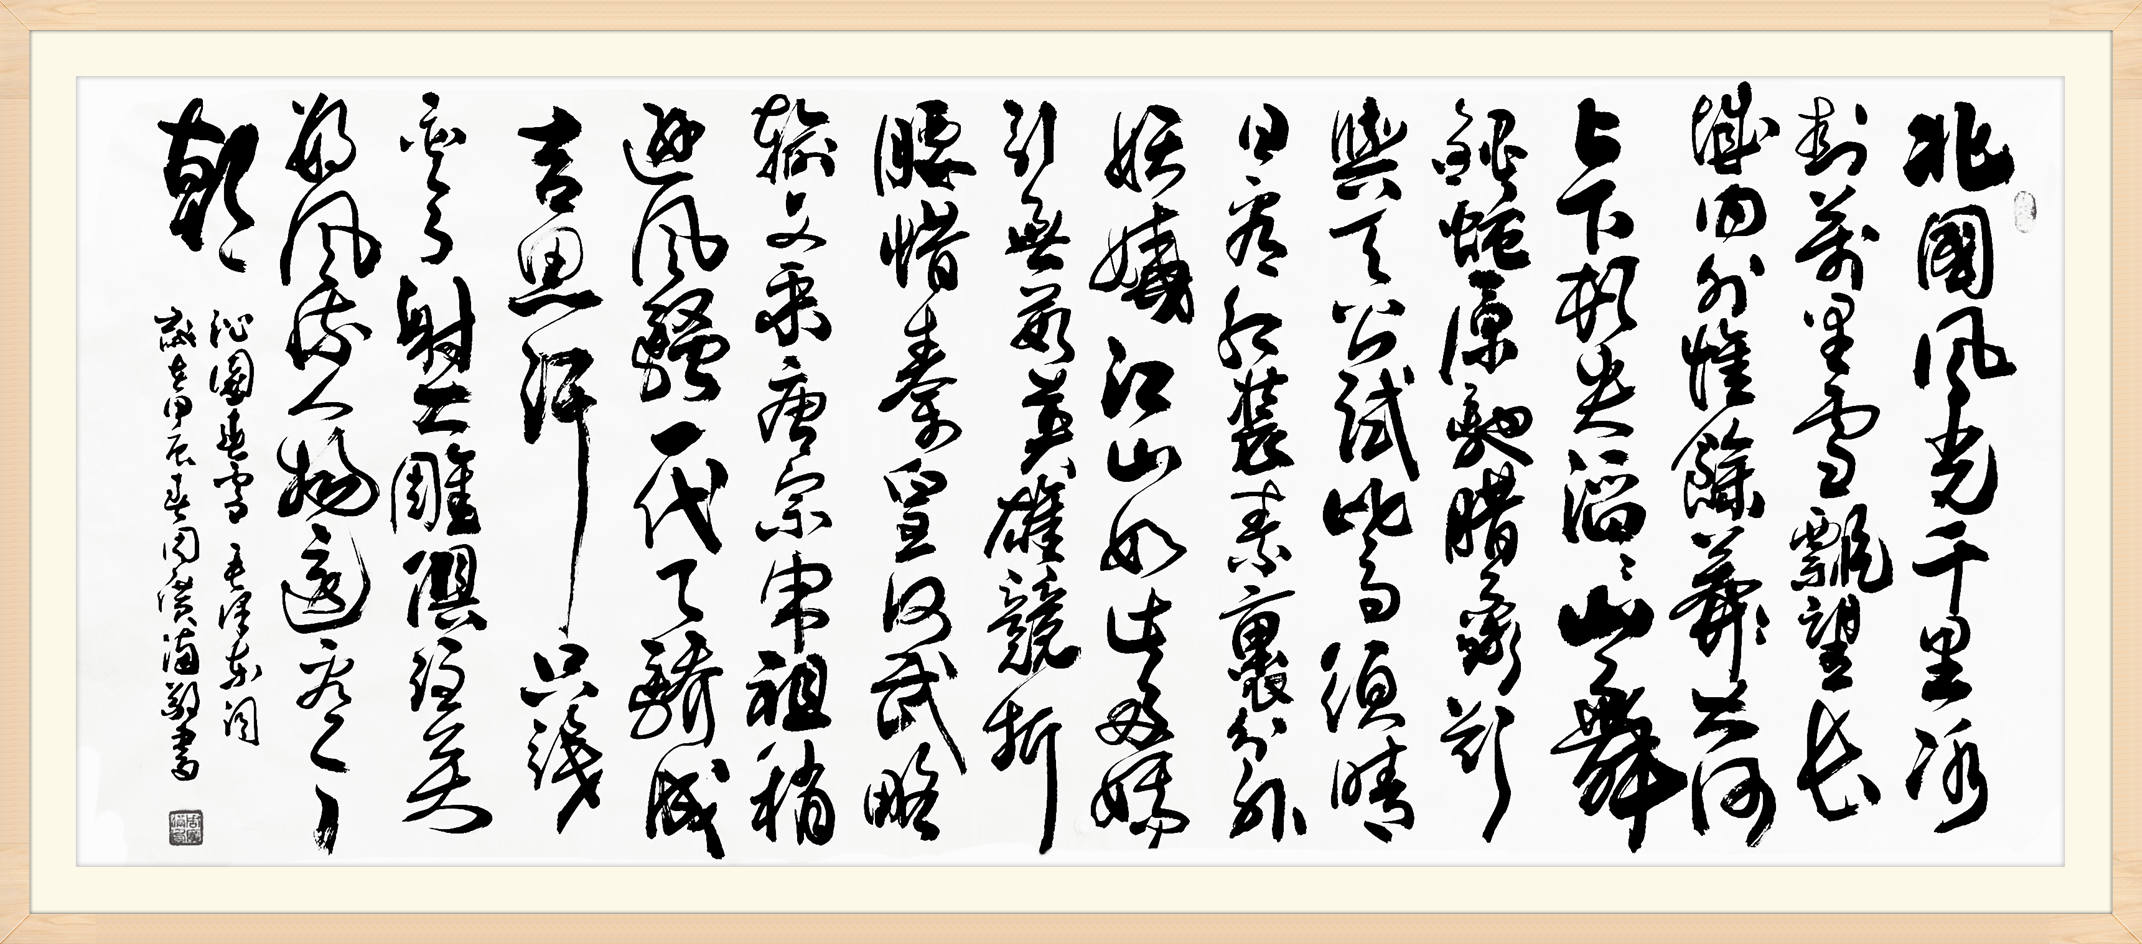 北國風光千里冰
封萬里雪飄望長
城內外惟餘莽〻大河
上下頓失滔〻山舞
銀蛇原馳腊象欲
與天公試比高須晴
日看紅裝素裹分外
妖嬈江山如此多嬌
引無數英雄競折
腰惜秦皇漢武略
輸文采唐宗宋祖稍
遜風騷一代天驕成
吉思汗只識
彎弓射大雕俱往矣
數風流人物還看今
朝
沁園春雪 毛澤東詞
歲在甲辰春周廣滿敬書